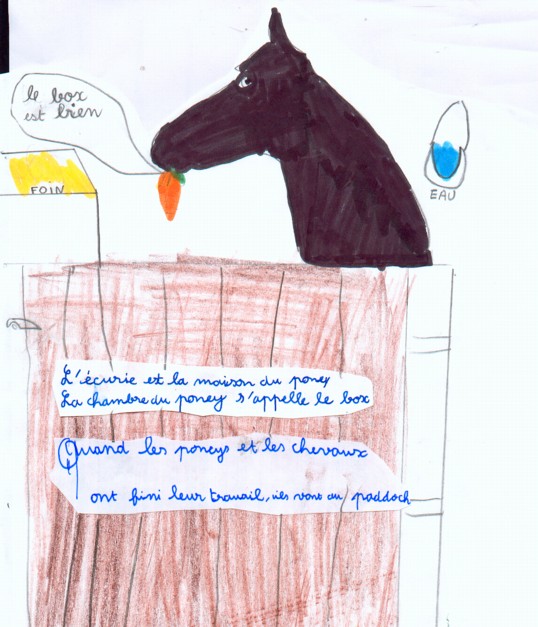 le box
est bien
FOIN
EAU
L'écurie et la maison du poney
La chambre du poney s'appelle le box
Quand les poneys et les chevaux
ont fini leur travail, iles vont au paddock